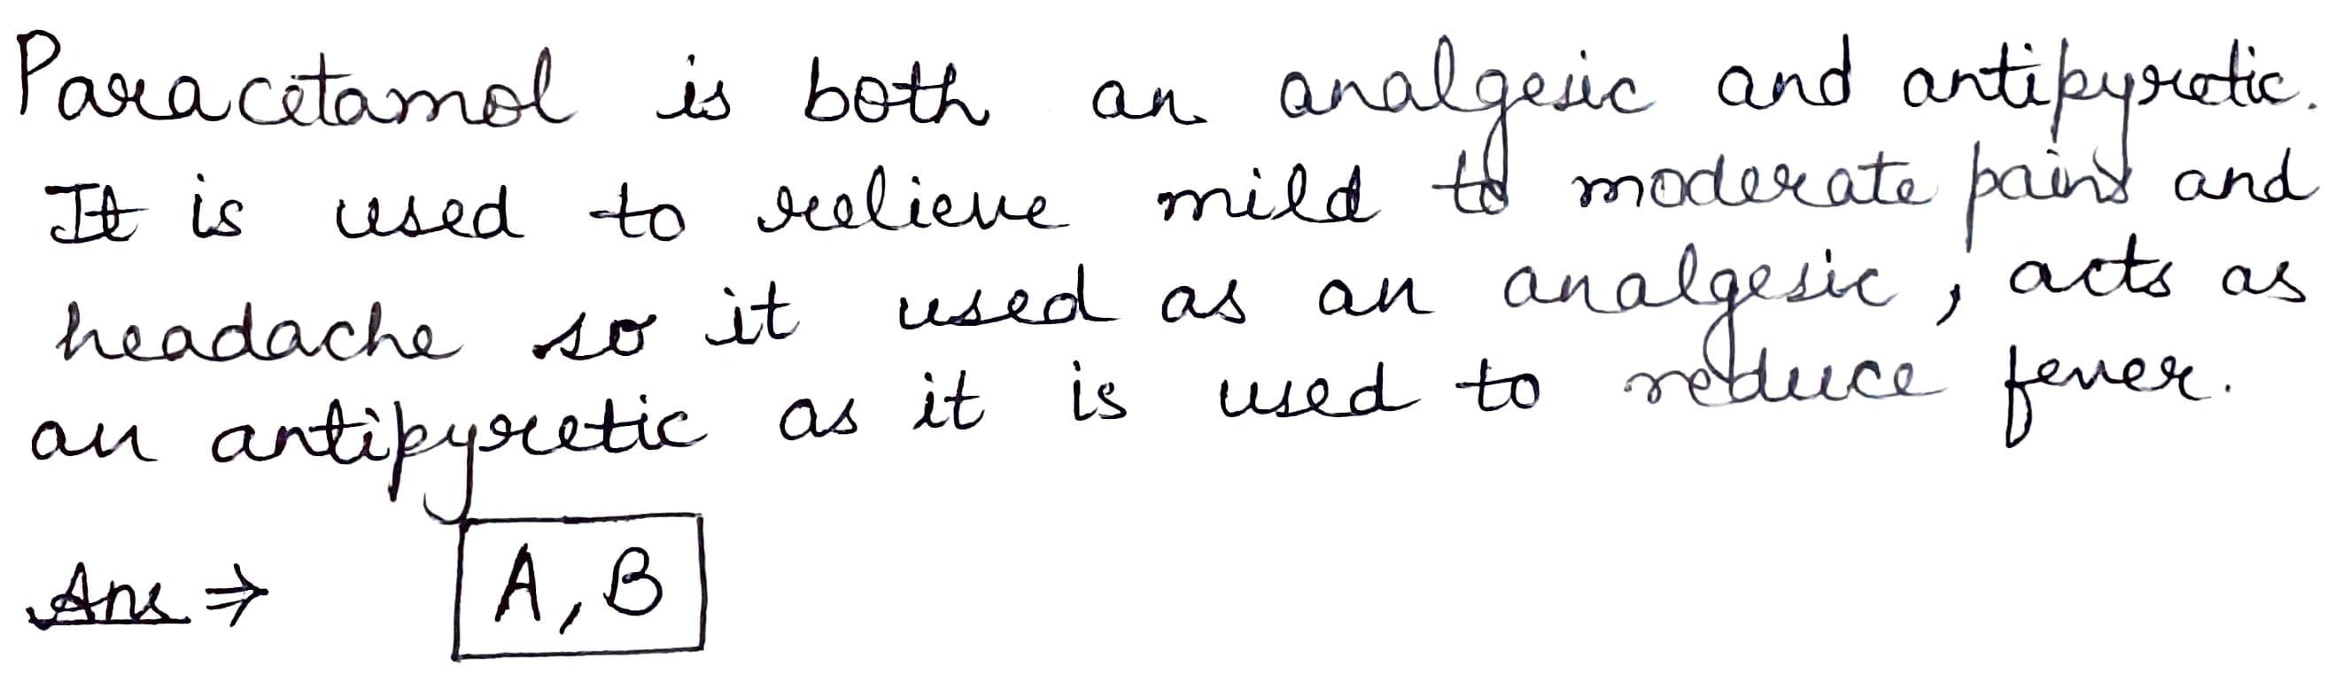 Paracetamol is both an analgesic and antipyretic.
It is used to relieve mild to moderate pains and
headache so it used as an analgesic, acts as
an antipyretic as it is used to reduce fever.
Ans ⇒ A, B